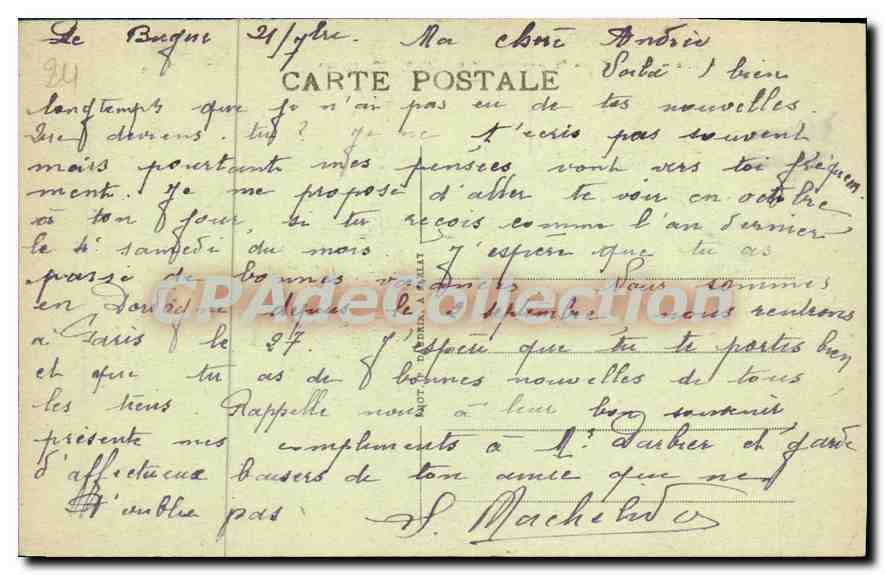 Le Bugue 21/7bre. Ma chère Andrée
24
CARTE POSTALE
Voilà bien
longtemps que je n'ai pas eu de tes nouvelles.
Que deviens-tu ? Je ne t'écris pas souvent
mais pourtant mes pensées vont vers toi fréquem
ment. Je me propose d'aller te voir en octobre
à ton jour, si tu reçois comme l'an dernier
le 4e samedi du mois J'espère que tu as
passé de bonnes vacances Nous sommes
en Dordogne depuis le 2 septembre nous rentrons
à Paris le 27. J'espère que tu te portes bien
et que tu as de bonnes nouvelles de tous
les tiens. Rappelle nous à leur bon souvenir
présente mes compliments à Mr Darbier et garde
d'affectueux baisers de ton amie que ne
t'oublie pas
S.
CPADeCollection